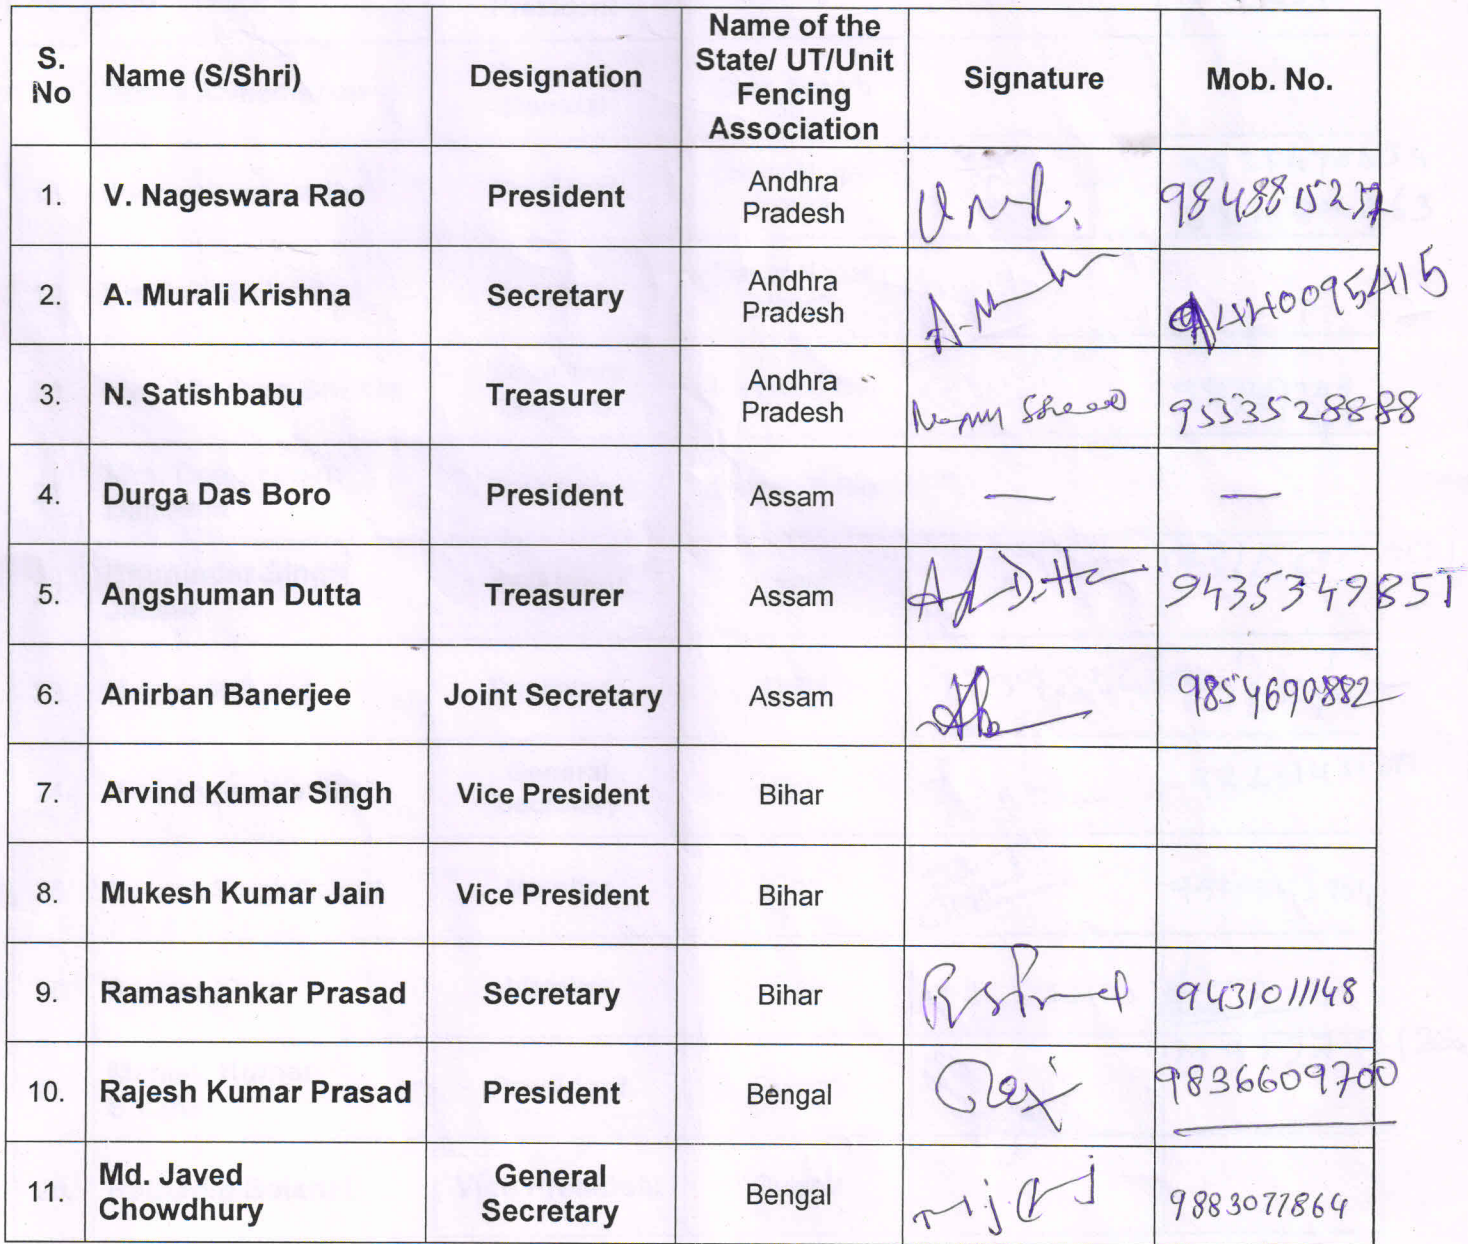 S. No | Name (S/Shri) | Designation | Name of the State/ UT/Unit Fencing Association | Signature | Mob. No.
1. | V. Nageswara Rao | President | Andhra Pradesh | | 9848815237
2. | A. Murali Krishna | Secretary | Andhra Pradesh | | 9440095415
3. | N. Satishbabu | Treasurer | Andhra Pradesh | | 9553528888
4. | Durga Das Boro | President | Assam | — | —
5. | Angshuman Dutta | Treasurer | Assam | | 9435349851
6. | Anirban Banerjee | Joint Secretary | Assam | | 9854690882
7. | Arvind Kumar Singh | Vice President | Bihar
8. | Mukesh Kumar Jain | Vice President | Bihar
9. | Ramashankar Prasad | Secretary | Bihar | | 9431011148
10. | Rajesh Kumar Prasad | President | Bengal | | 9836609700
11. | Md. Javed Chowdhury | General Secretary | Bengal | | 9883077864